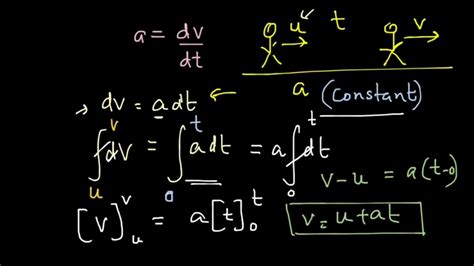 a = dv/dt
u t v
a (constant)
→ dv = a dt ←
∫ᵤᵛ dv = ∫₀ᵗ a dt = a ∫₀ᵗ dt
v - u = a(t-0)
[v]ᵤᵛ = a[t]₀ᵗ
v = u + at